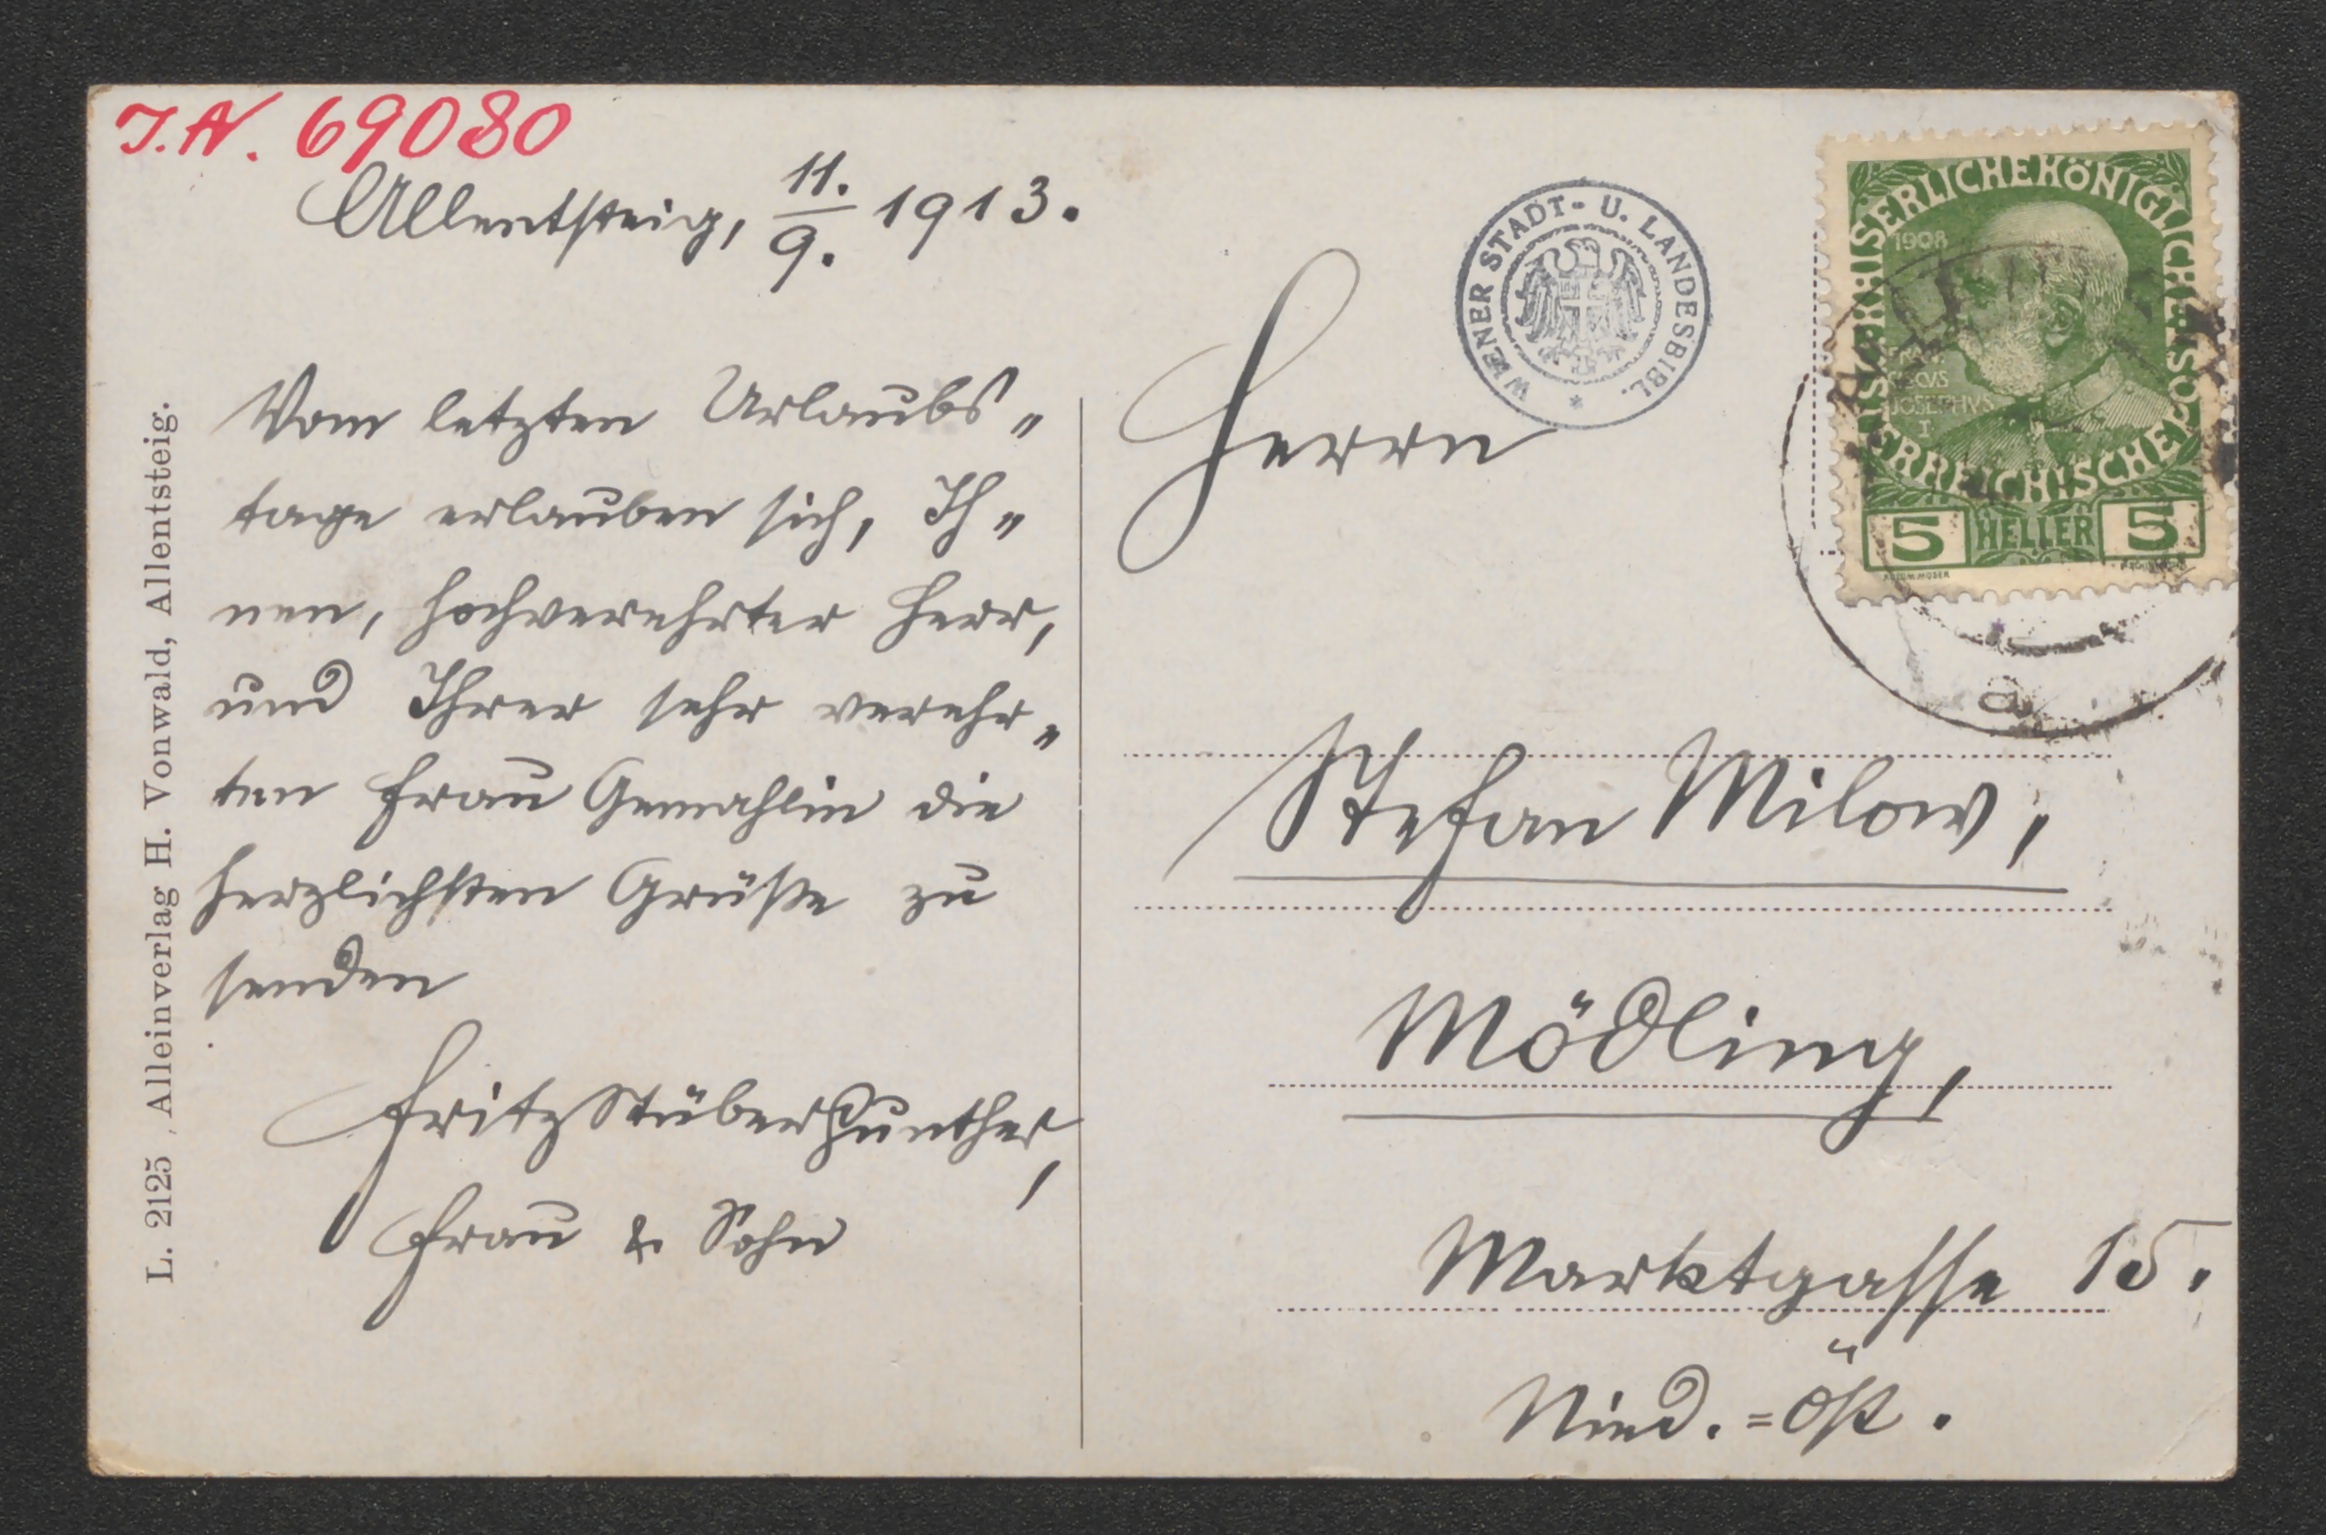 J.N. 69080
Allentsteig, 11./9. 1913.
Vom letzten Urlaubs„
tage erlauben sich, Ih„
nen, hochverehrter Herr,
und Ihrer sehr verehr„
ten Frau Gemahlin die
herzlichsten Grüße zu
senden
Fritz Stüber Gunther,
Frau & Sohn
L. 2125 Alleinverlag H. Vonwald, Allentsteig.
WIENER STADT- U. LANDESBIBL. *
KAISERLICHEKÖNIGLICHE
ÖSTERREICHISCHE
1908
JOSEPHVS
I
5 HELLER 5
a
Herrn
Stefan Milow,
Mödling,
Marktgasse 15.
Nied.=Öst.